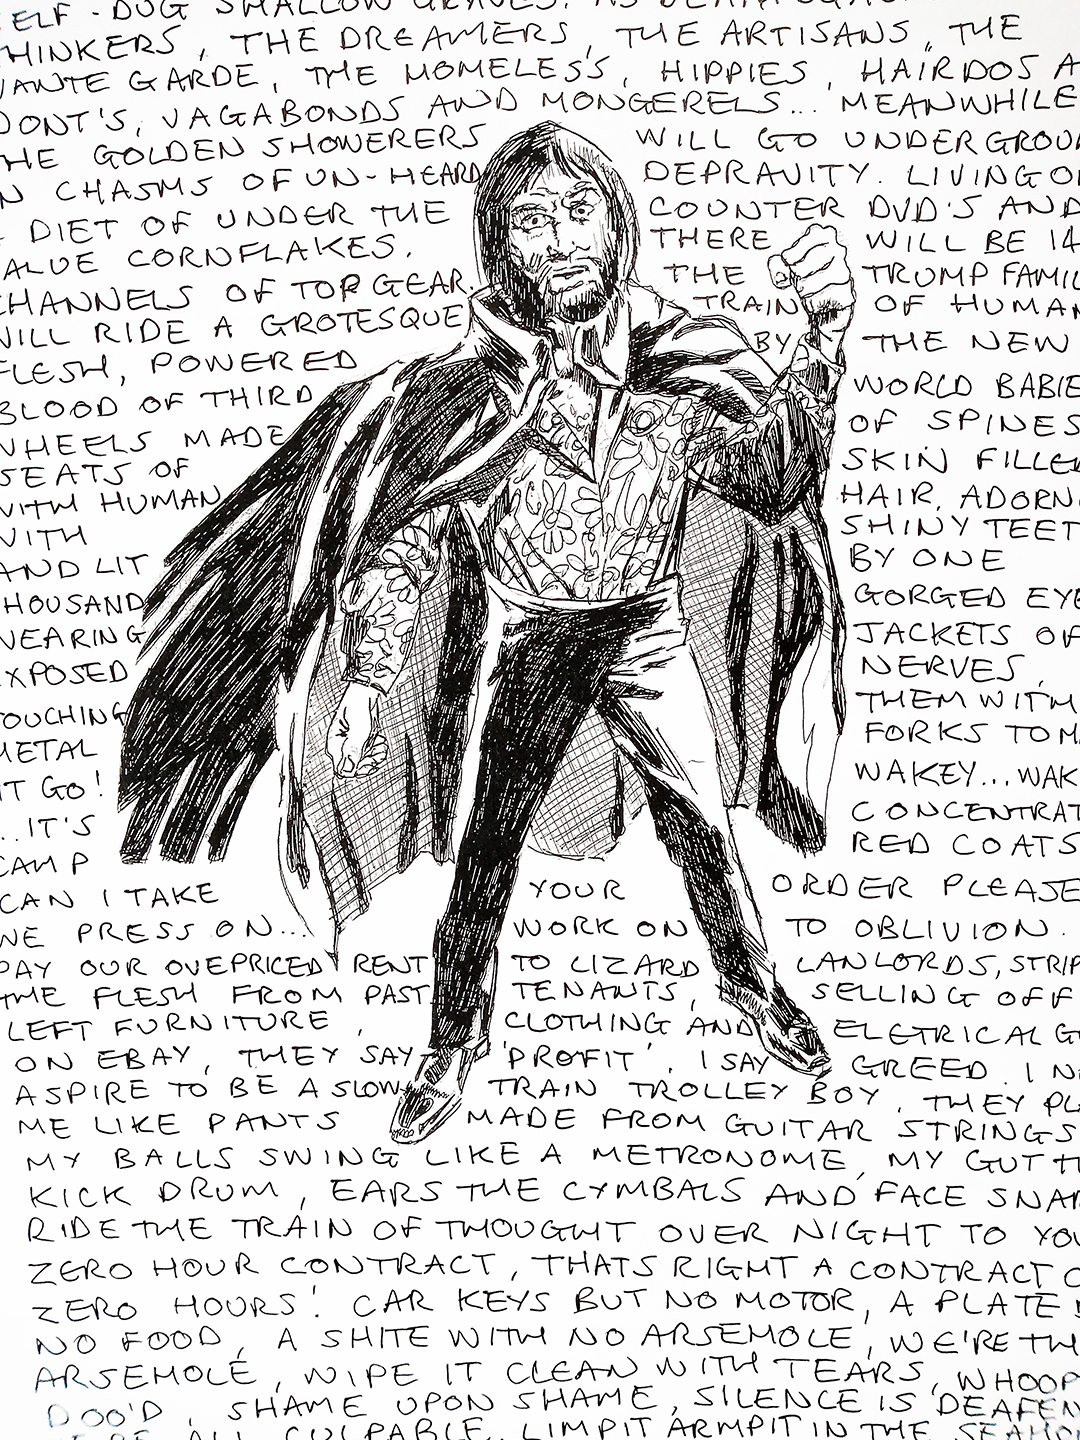 ELF-DUG SHALLOW GRAVES.
HINKERS, THE DREAMERS, THE ARTISANS, THE
VANTE GARDE, THE HOMELESS, HIPPIES, HAIRDOS A
DONT'S, VAGABONDS AND MONGERELS... MEANWHILE
HE GOLDEN SHOWERERS WILL GO UNDERGROU
N CHASMS OF UN-HEARD DEPRAVITY. LIVING O
DIET OF UNDER THE COUNTER DVD'S AND
ALUE CORNFLAKES. THERE WILL BE 14
CHANNELS OF TOP GEAR. THE TRUMP FAMIL
WILL RIDE A GROTESQUE TRAIN OF HUMAN
FLESH, POWERED BY THE NEW
BLOOD OF THIRD WORLD BABIE
WHEELS MADE OF SPINES
SEATS OF SKIN FILLE
WITH HUMAN HAIR, ADORN
WITH SHINY TEET
AND LIT BY ONE
HOUSAND GORGED EYE
WEARING JACKETS OF
EXPOSED NERVES,
TOUCHING THEM WITH
METAL FORKS TO MA
IT GO! WAKEY...WAK
..IT'S CONCENTRAT
CAMP RED COATS
CAN I TAKE YOUR ORDER PLEASE
WE PRESS ON... WORK ON TO OBLIVION.
PAY OUR OVEPRICED RENT TO LIZARD LANLORDS, STRIP
THE FLESH FROM PAST TENANTS, SELLING OFF
LEFT FURNITURE, CLOTHING AND ELETRICAL G
ON EBAY, THEY SAY 'PROFIT'. I SAY GREED. I N
ASPIRE TO BE A SLOW TRAIN TROLLEY BOY. THEY PL
ME LIKE PANTS MADE FROM GUITAR STRINGS
MY BALLS SWING LIKE A METRONOME, MY GUT TH
KICK DRUM, EARS THE CYMBALS AND FACE SNAR
RIDE THE TRAIN OF THOUGHT OVER NIGHT TO YOU
ZERO HOUR CONTRACT, THATS RIGHT A CONTRACT O
ZERO HOURS! CAR KEYS BUT NO MOTOR, A PLATE
NO FOOD, A SHITE WITH NO ARSEHOLE, WE'RE TH
ARSEHOLE, WIPE IT CLEAN WITH TEARS, WHOOP
DOO'D, SHAME UPON SHAME, SILENCE IS DEAFEN
ALL CULPABLE, LIMPIT ARMPIT IN THE